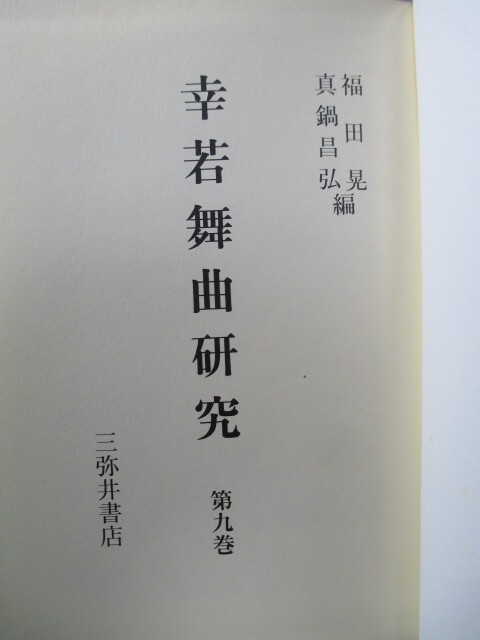 福田晃
真鍋昌弘編
幸若舞曲研究
第九巻
三弥井書店